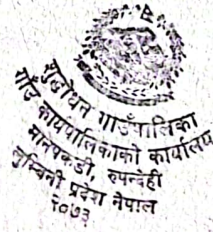 शुद्धोधन गाउँपालिका
गाउँ कार्यपालिकाको कार्यालय
मानपकडी, रुपन्देही
लुम्बिनी प्रदेश नेपाल
२०७३